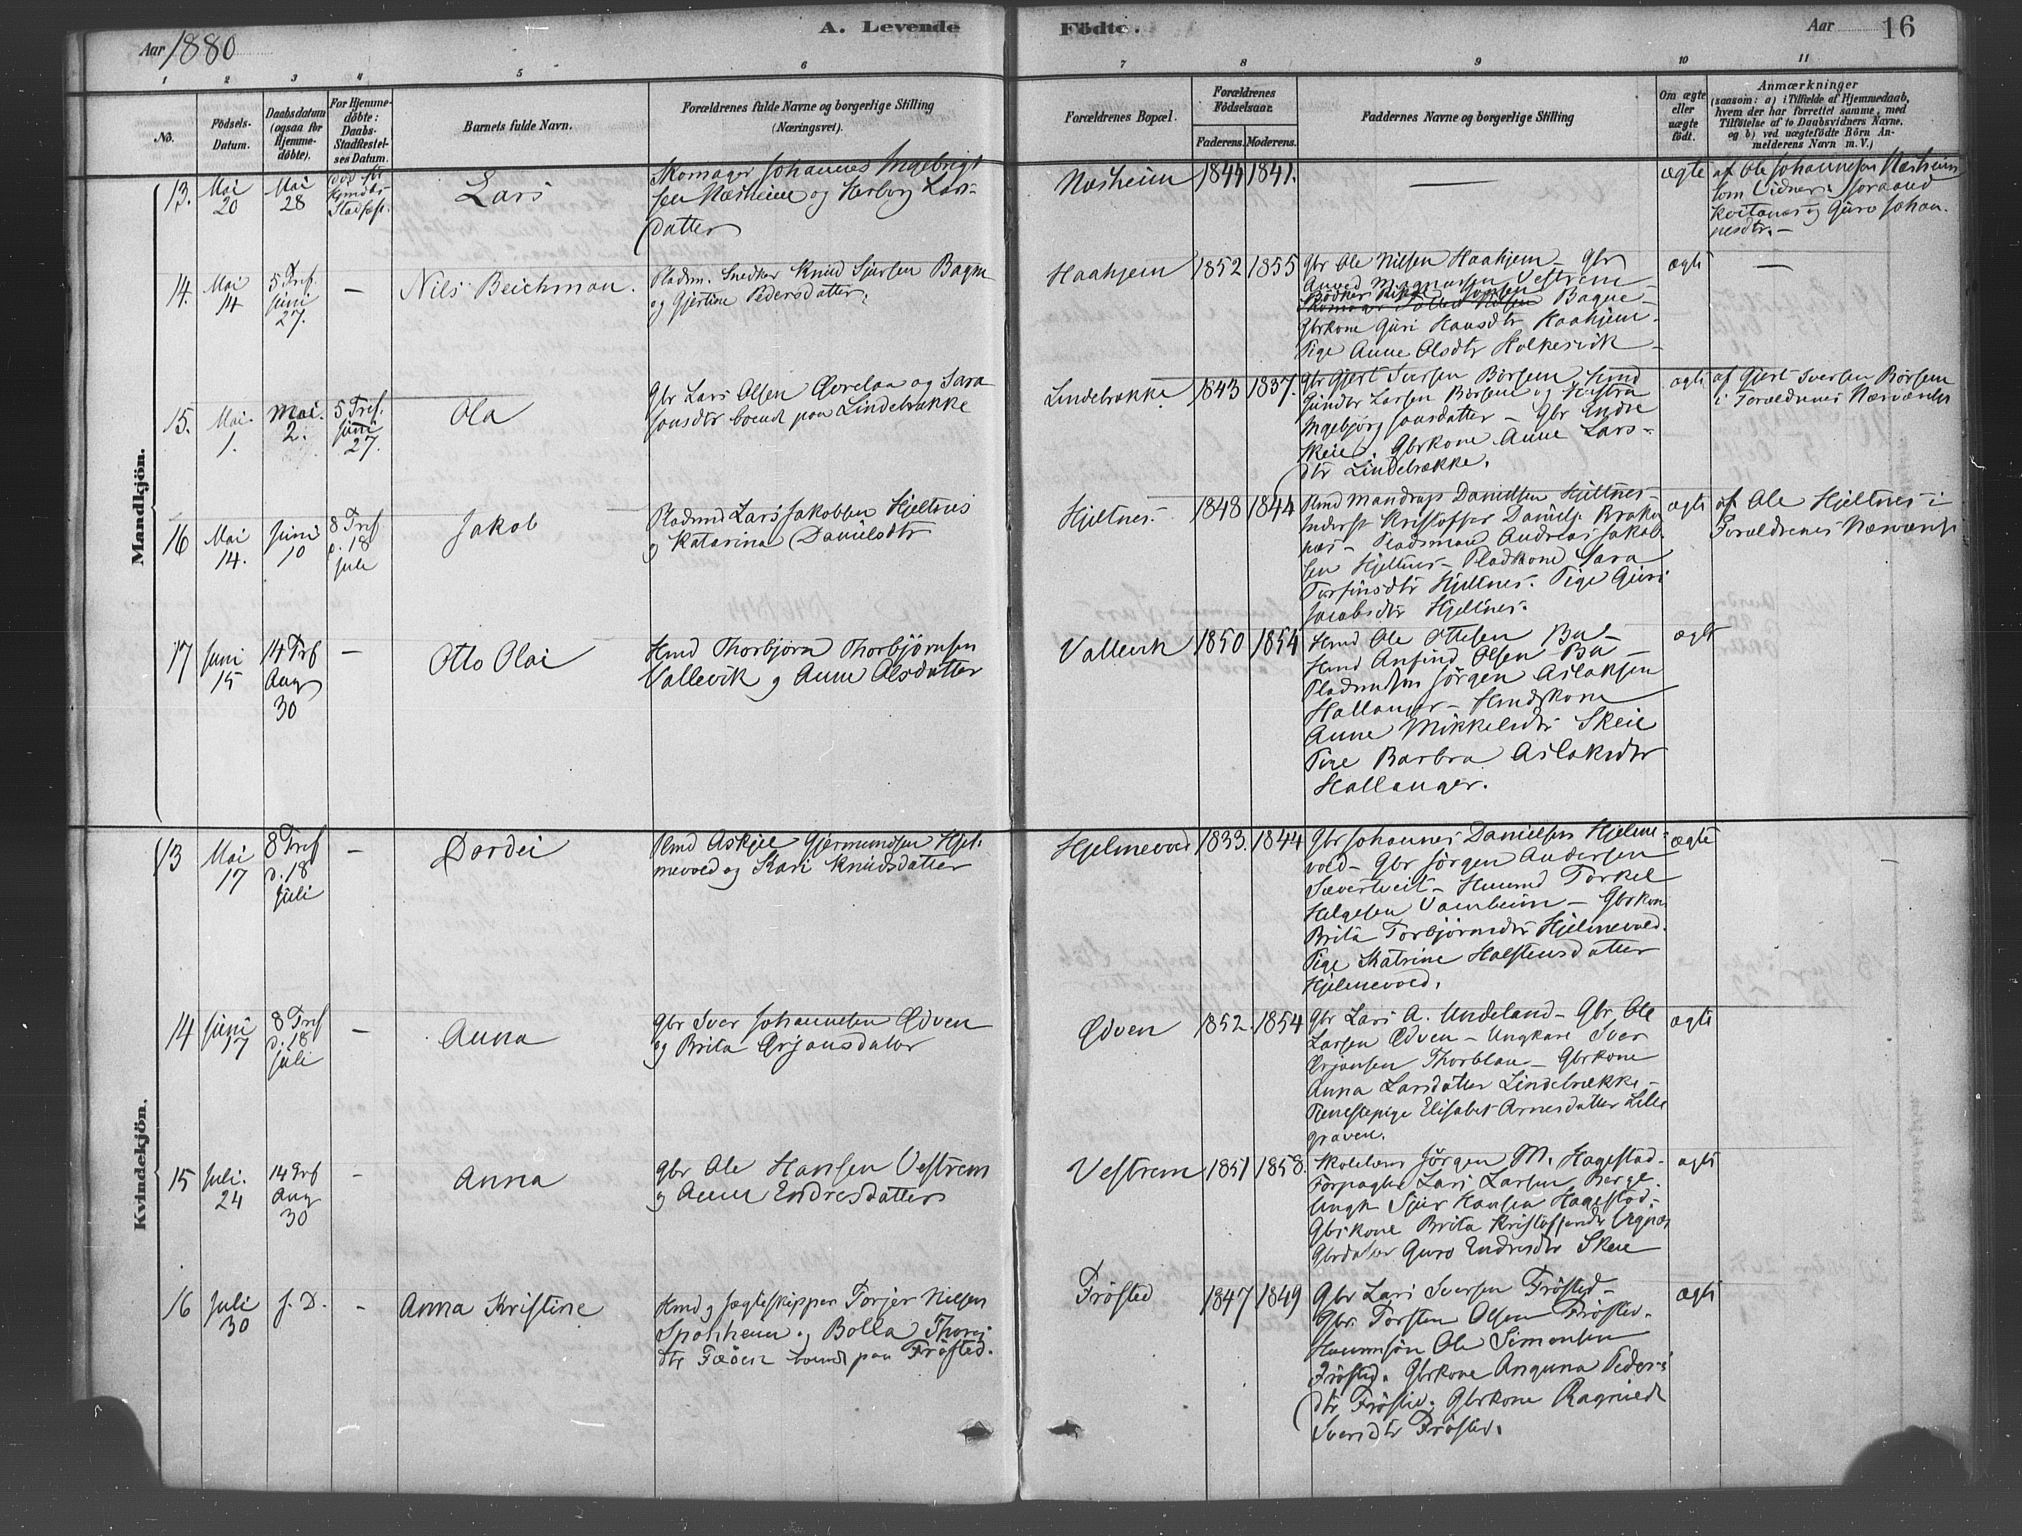 Aar 1880
A. Levende
Födte.
Aar
16
1
2
3
4
5
6
7
8
9
10
11
No.
Födsels-
Datum.
Daabsdatum
(ogsaa for
Hjemme-
döbte).
For Hjemme-
döbte:
Daabs-
Stadfæstel-
ses Datum.
Barnets fulde Navn.
Forældrenes fulde Navne og borgerlige Stilling
(Næringsvei).
Forældrenes Bopæl.
Forældrenes
Födselsaar.
Faderens.
Moderens.
Faddernes Navne og borgerlige Stilling
Om ægte
eller
uægte
födt.
Anmærkninger
(saasom: a) i Tilfælde af Hjemmedaab,
hvem der har forrettet samme, med
Tilföielse af to Daabsvidners Navne,
og b) ved uægtefödte Börn An-
melderens Navn m. V.)
Mandkjön.
13.
Mai
20
Mai
28
död för
hjemdbs
Stadfst.
Lars
Skomager Johannes Ingebrigt
sen Næsheim og Herborg Lars-
datter
Næsheim
1844
1841.
—
ægte
af Ole Johannesen Næsheim
som Vidner:
og Guro Johan-
nesdtr. —
14.
Mai
14
5 Tref.
Juni
27.
—
Nils Beichman.
Pladsm. Snedker Knud Sjursen Bagn
og Gjertine Pedersdatter.
Haahjem
1852
1855
Gbr Ole Nilsen Haahjem – Gbr
Amund Magnussen Vestrem –
Bagne –
Gbrkone Guri Hansdtr Haahjem –
Pige Anne Olsdtr Holkesvik –
ægte
—
15.
Mai.
1.
Mai.
2.
5 Tref.
Juni
27.
Ola
Gbr Lars Olsen Øvrelaa og Sara
Jonsdtr boende paa Lindebrække
Lindebrække
1843
1837.
Gbr Gjert Iversen Börsem,
Larsen Börsem og Hustru
Ingebjörg Jonsdatter – Gbr Endre
Skeie. Gbrkone Anne Lars-
dtr Lindebrække.
ægte
af Gjert Iversen Börsem
i Foreldrenes Nærværelse
16
Mai
14.
Juni
10
8 Tref
d. 18
Juli
Jakob
Pladsmd Lars Jakobsen Hjeltnes
og Katarina Danielsdtr
Hjeltnes –
1848
1844
Hmd Mandrup Danielsen Hjeltnes –
Inderst Kristoffer Daniels. Brake
næs – Pladsmand Andreas Jakob-
sen Hjeltnes – Pladskone Sara
Torfinsdtr Hjeltnes. Pige Guri
Jacobsdtr Hjeltnes.
ægte
af Ole Hjeltnes i
Foreldrenes Nærværelse
17
Juni
15
14 Trf
Aug
30
—
Otto Olai
Hmd Thorbjörn Thorbjörnsen
Vallevik og Anne Olsdatter
Vallevik
1850
1854
Hmd Ole Ottesen Bu –
Hmd Anfind Olsen Bu –
Jörgen Aslaksen
Hallanger – Hmdskone
Anne Mikkelsdtr Skeie
Pige Barbra Aslaksdtr
Hallanger.
ægte
Kvindekjön.
13
Mai
17
8 Tref
d. 18
Juli
—
Dordei
Hmd Askjel Gjermundsen Hjel-
mevold og Kari Knudsdatter
Hjelmevold
1833.
1844
Gbr Johannes Danielsen Hjelme-
vold – Gbr Jörgen Andersen
Sævertveit – Husmd Torkel
Helgesen Vambeim – Gbrkone
Brita Torbjörnsdtr Hjelmevold.
Pige Katrine Halstensdatter
Hjelmevold.
ægte
14
Juni
17
8 Tref
d. 18
Juli
—
Anna
Gbr Iver Johannesen Ødven
og Brita Ørjansdatter
Ødven
1852.
1854
Gbr Lars A. Undeland – Gbr Ole
Larsen Ødven – Ungkarl Iver
Ørjansen Thorblaa – Gbrkone
Anna Larsdatter Lindebrække –
Tjenestepige Elisabet Arnesdatter Lille
graven.
ægte
15
Juli.
24
14 Trf
Aug
30
—
Anna
Gbr Ole Hansen Vestrem
og Anna Endresdatter
Vestrem
1851
1858.
Skolelærer Jörgen M. Hagestad.
Forpagter Lars Larsen Berge.
Ungk Sjur Hansen Hagestad –
Gbrkone Brita Kristoffersdtr Vignæs
Gbrdatter Guro Endresdtr Skeie
ægte
16
Juli
30
s. D.
—
Anna Kristine
Hmd og Jægteskipper Torjer Nilsen
Spaanheim og Bolla Thores
dtr Fæöen boende paa Frösted.
Frösted
1847
1849
Gbr Lars Iversen Frösted –
Gbr. Torsten Olsen Frösted.
Husmsön Ole Simonsen
Frösted. Gbrkone Anguna Peders-
dtr Frösted. Gbrkone Ragnilde
Iversdtr Frösted.
ægte